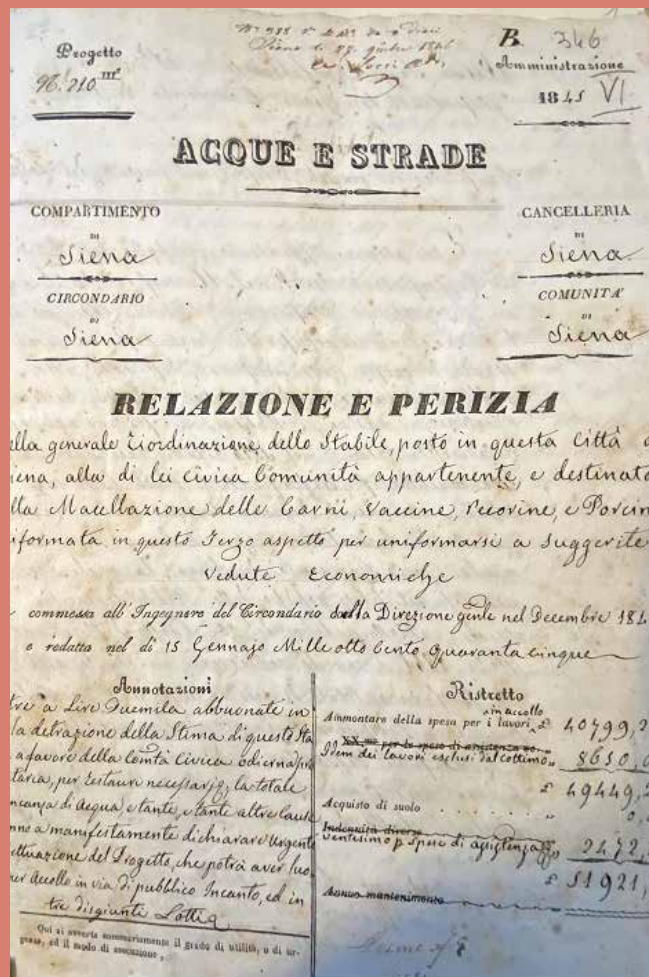 B. 346
Progetto
Siena
Amministrazione
1845 VI
ACQUE E STRADE
COMPARTIMENTO
DI
Siena
CIRCONDARIO
DI
Siena
CANCELLERIA
DI
Siena
COMUNITA'
DI
Siena
RELAZIONE E PERIZIA
generale riordinazione dello Stabile, posto in questa Città
alla di lei Civica Comunità appartenente, e destinato
Macellazione delle Carni, Vaccine, Pecorine, e
in questo Terzo aspetto per uniformarsi a Suggerite
Vedute Economiche
commessa all'Ingegnere del Circondario dalla Direzione genle nel Decembre
e redatta nel dì 15 Gennajo Mille otto Cento quaranta cinque
Annotazioni
a Lire Duemila abbuonate in
la detrazione della Stima di questo
a favore della Comtà Civica odierna
per restauri necessarj; la totale
di Acqua, e tante, e tante altre Cause
a manifestamente dichiarare Urgente
del Progetto, che potrà aver
Accollo in via di pubblico Incanto, ed in
tre disgiunti Lotti
Qui si avverta sommariamente il grado di utilità, o di
ed il modo di esecuzione,
Ristretto
Ammontare della spesa per i lavori in accollo £ 40799,2
Idem dei lavori esclusi dal Cottimo „ 8650,0
£ 49449,2
Acquisto di suolo „
Indennità diverse
ventesimo p. spese di assistenza 2472,
£ 51921,
Annuo mantenimento